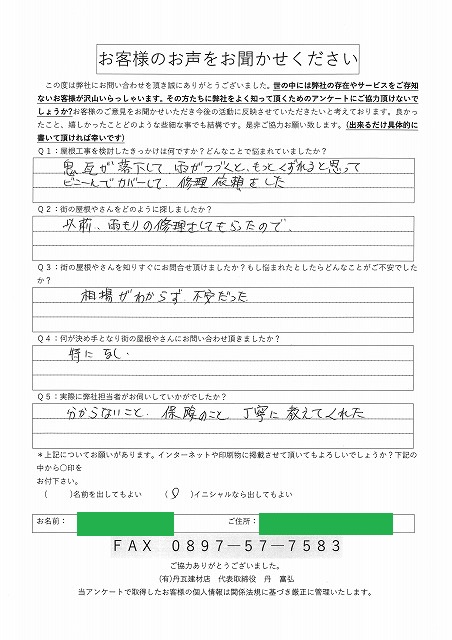 お客様のお声をお聞かせください
この度は弊社にお問い合わせを頂き誠にありがとうございました。世の中には弊社の存在やサービスをご存知
ないお客様が沢山いらっしゃいます。その方たちに弊社をよく知って頂くためのアンケートにご協力頂けないで
しょうか?お客様のご意見をお聞かせいただき今後の活動に反映させていただきたいと考えております。良かっ
たこと、嬉しかったことどのような些細な事でも結構です。是非ご協力お願い致します。(出来るだけ具体的に
書いて頂ければ幸いです)
Q1:屋根工事を検討したきっかけは何ですか?どんなことで悩まれていましたか?
瓦が落下して、雨がつづくと、もっとくずれると思って
ビニールでカバーして、修理依頼をした
Q2:街の屋根やさんをどのように探しましたか?
以前、雨もりの修理をしてもらったので、
Q3:街の屋根やさんを知りすぐにお問合せ頂けましたか?もし悩まれたとしたらどんなことがご不安でした
か?
相場がわからず、不安だった
Q4:何が決め手となり街の屋根やさんにお問い合わせ頂きましたか?
特になし.
Q5:実際に弊社担当者がお伺いしていかがでしたか?
分からないこと、保険のこと、丁寧に教えてくれた
*上記についてお願いがあります。インターネットや印刷物に掲載させて頂いてもよろしいでしょうか?下記の
中から○印を
お付下さい。
( )名前を出してもよい (○)イニシャルなら出してもよい
お名前: ご住所:
FAX 0897-57-7583
ご協力ありがとうございました。
(有)丹瓦建材店 代表取締役 丹 富弘
当アンケートで取得したお客様の個人情報は関係法規に基づき厳正に管理いたします。